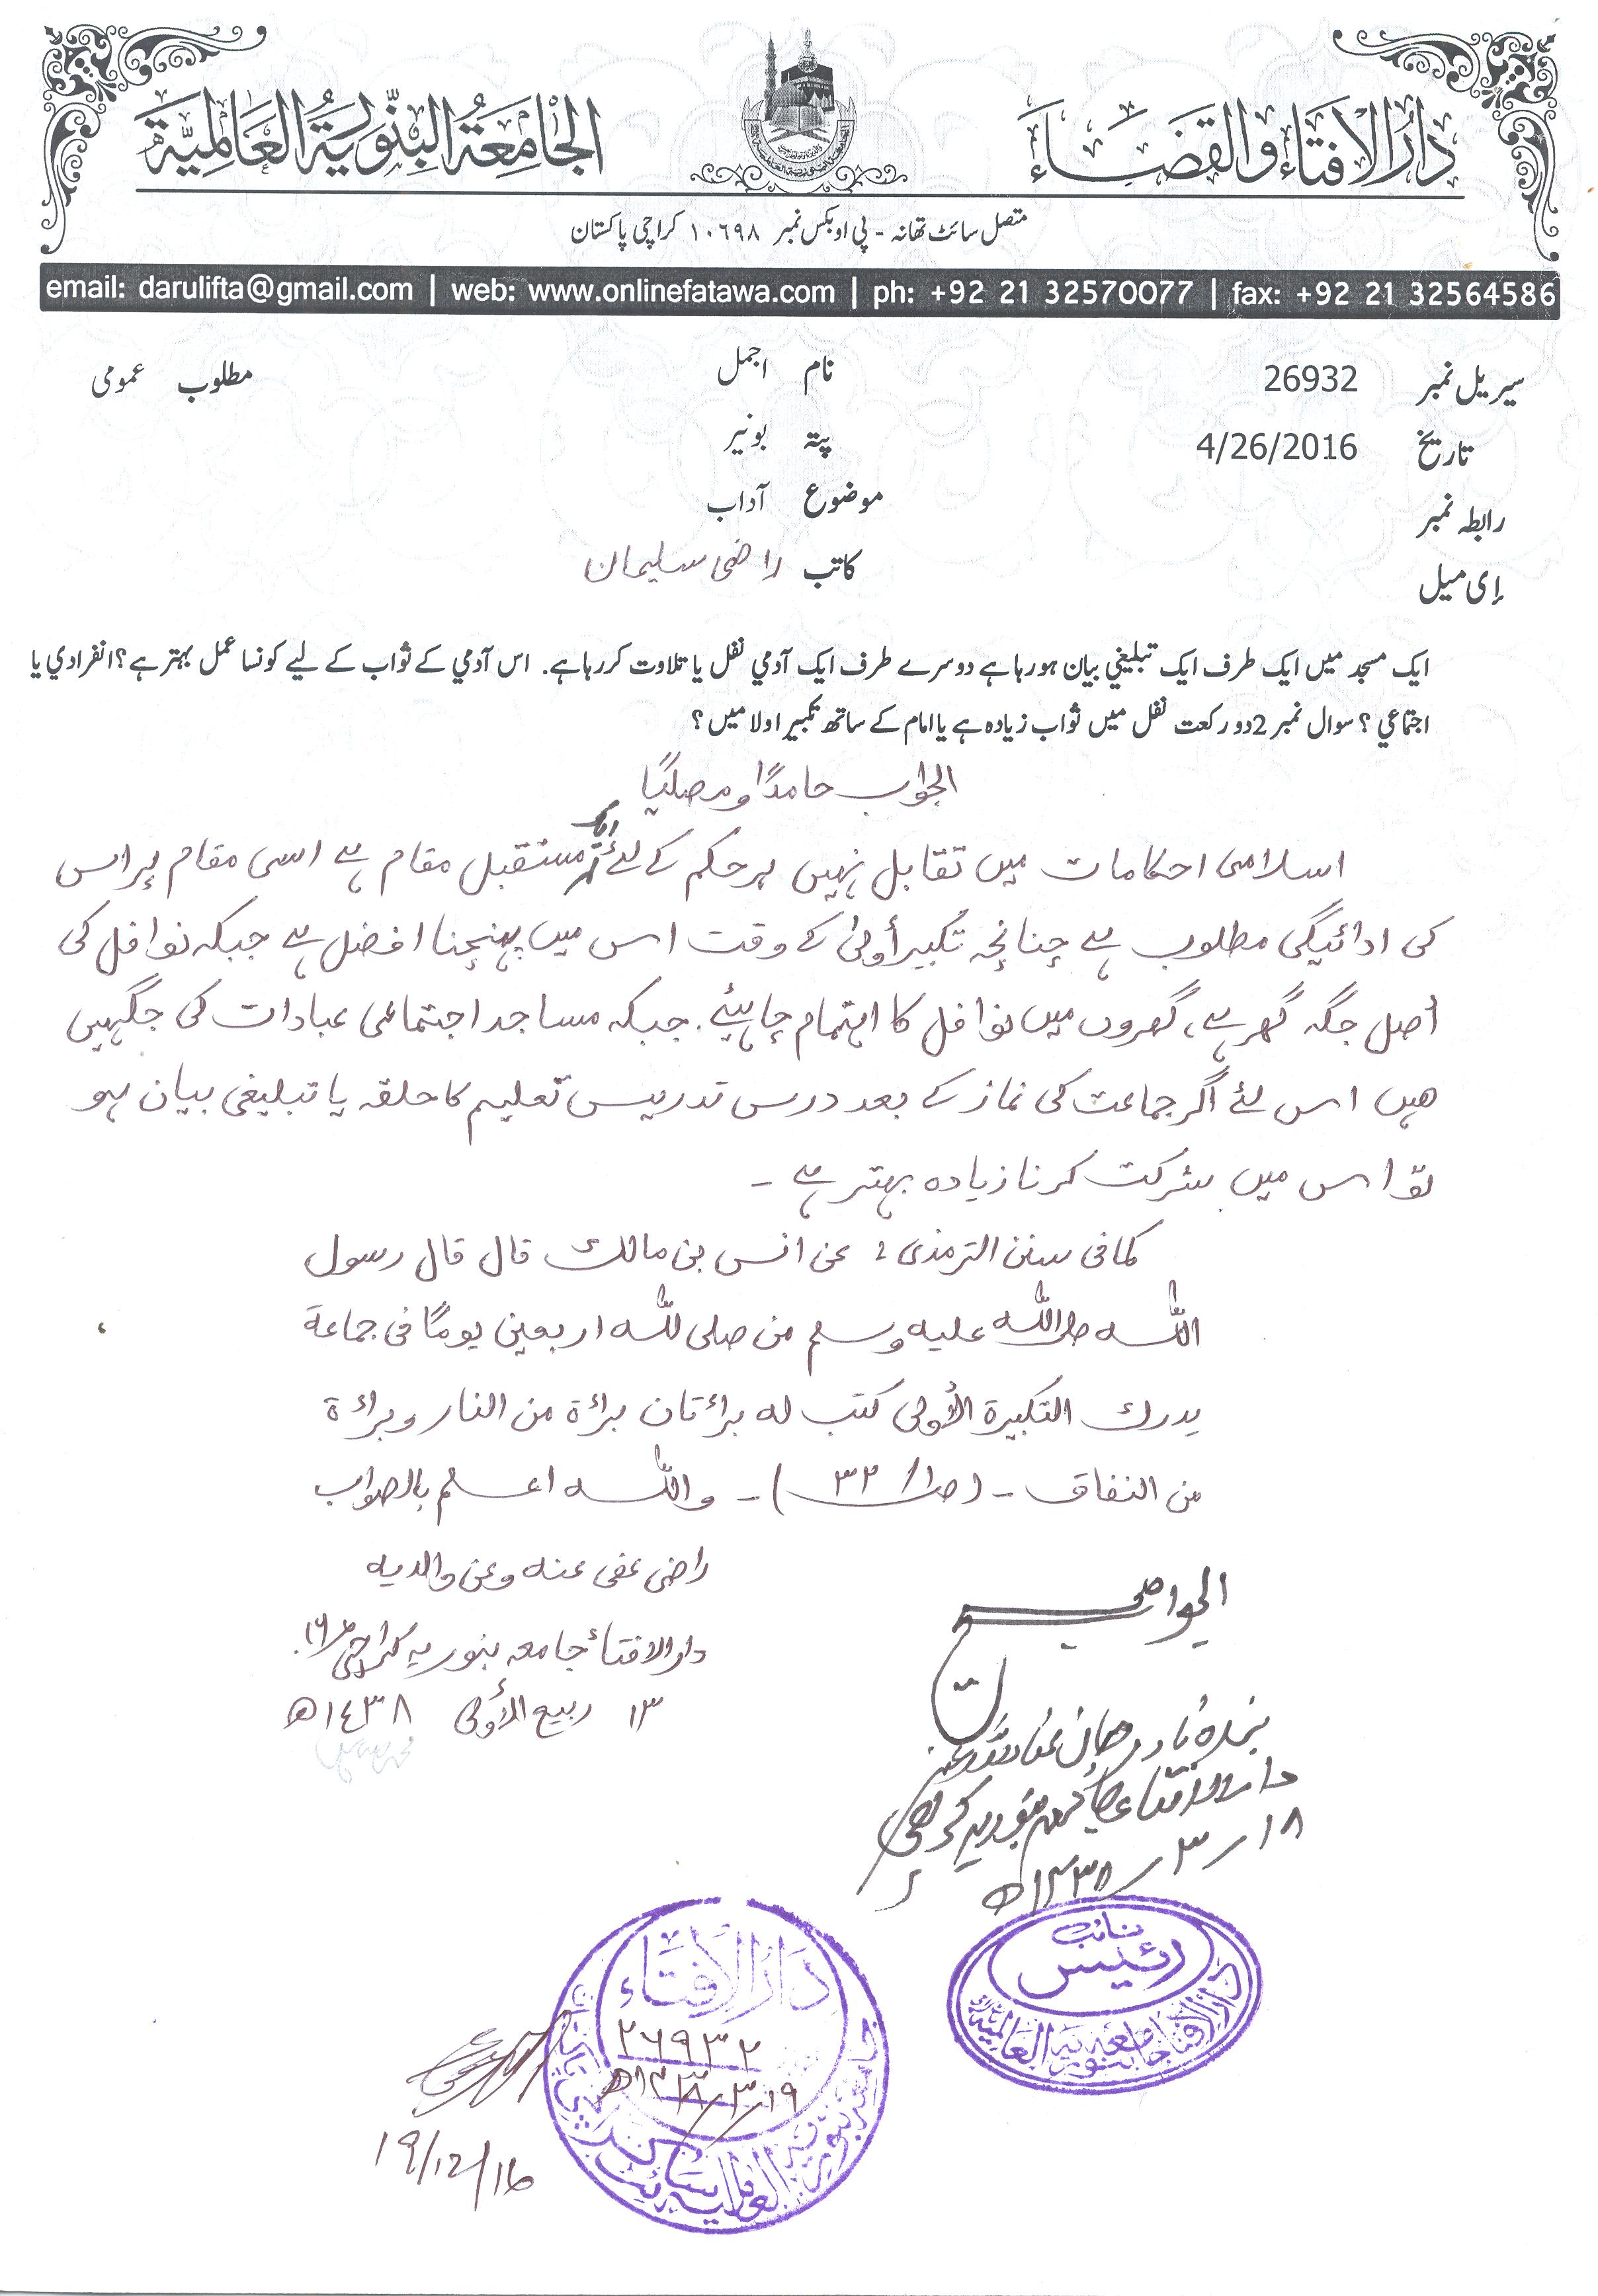 دارُ الافتاء والقضاء
الجامعة البنورية العالمية
متصل سائٹ تھانہ - پی او بکس نمبر ۱۰۶۹۸ کراچی پاکستان
email: darulifta@gmail.com | web: www.onlinefatawa.com | ph: +92 21 32570077 | fax: +92 21 32564586
سیریل نمبر 26932 نام اجمل مطلوب عمومی
تاریخ 4/26/2016 پتہ بونیر
رابطہ نمبر موضوع آداب
إی میل کاتب راضی سلیمان
ایک مسجد میں ایک طرف ایک تبلیغي بیان ہورہا ہے دوسرے طرف ایک آدمي نفل یا تلاوت کررہا ہے. اس آدمي کے ثواب کے لیے کونسا عمل بہتر ہے؟ انفرادي یا
اجتماعي ؟ سوال نمبر 2دو رکعت نفل میں ثواب زیادہ ہے یا امام کے ساتھ تکبیر اولا میں ؟
الجواب حامدًا ومصلیًا
اسلامی احکامات میں تقابل نہیں ہر حکم کے لئے ایک مستقبل مقام ہے اسی مقام پر اس
کی ادائیگی مطلوب ہے چنانچہ تکبیر أولیٰ کے وقت اس میں پہنچنا افضل ہے جبکہ نوافل کی
أصل جگہ گھر ہے، گھروں میں نوافل کا اہتمام چاہئے. جبکہ مساجد اجتماعی عبادات کی جگہیں
ھیں اس لئے اگر جماعت کی نماز کے بعد درس تدریس تعلیم کا حلقہ یا تبلیغی بیان ہو
تو اس میں شرکت کرنا زیادہ بہتر ہے -
کما فی سنن الترمذی : عن انس بن مالک قال قال رسول
اللّٰه صلی اللّٰه علیه وسلم من صلی للّٰه اربعین یومًا فی جماعة
یدرک التکبیرة الأولی کتب له برائتان برائة من النار وبرائة
من النفاق - (ص۱/ ۳۳) - واللّٰه اعلم بالصواب
راضی عفی عنه وعن والدیه
دار الافتاء جامعہ بنوریہ کراچی ۱۶
۱۳ ربیع الأولی ۱٤۳۸ھ
الجواب صحیح
بندہ نادر جان عفا اللہ عنہ
دار الافتاء جامعہ بنوریہ کراچی
۱۸ / ۳ / ۱۴۳۸ھ
نائب
رئیس
دار الافتاء جامعہ بنوریہ العالمیہ
دَارُ الاِفْتَاء
۲۶۹۳۲
۱۹/۳/۱۴۳۸ھ
19/12/16